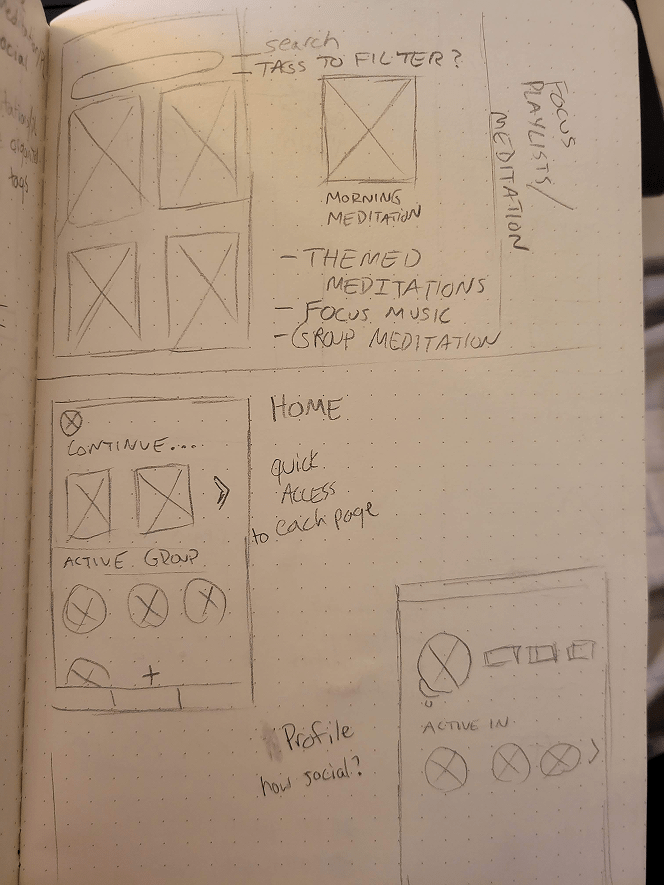 search
- TAGS TO FILTER?
MORNING
MEDITATION
- THEMED
MEDITATIONS
- FOCUS MUSIC
- GROUP MEDITATION
FOCUS
PLAYLISTS/
MEDITATION
HOME
quick
ACCESS
to each page
CONTINUE....
ACTIVE GROUP
+
Profile
how social?
ACTIVE IN
social
tags